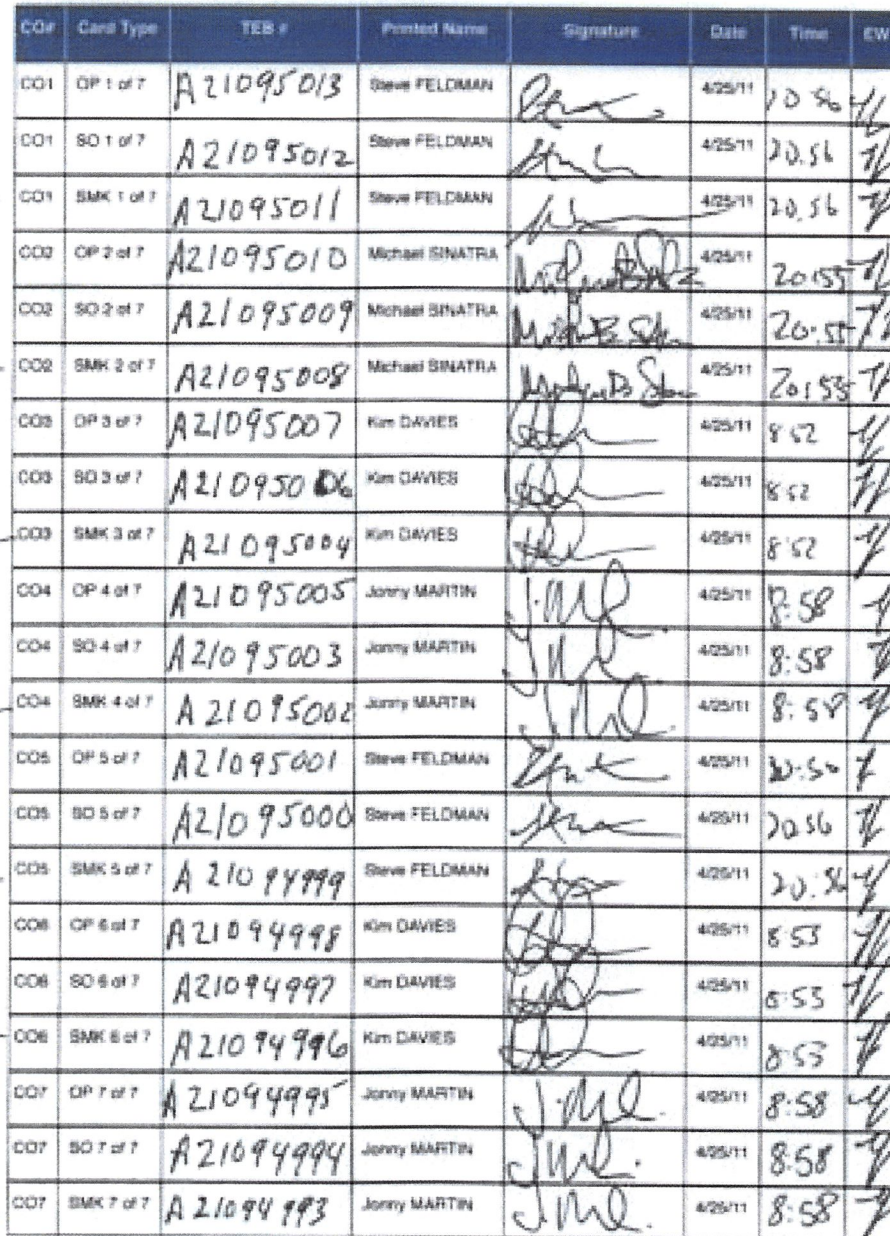 CO# Card Type TEB # Printed Name Signature Date Time EW
CO1 OP 1 of 7 A21095013 Steve FELDMAN 4/25/11 20 56
CO1 SO 1 of 7 A21095012 Steve FELDMAN 4/25/11 20.56
CO1 SMK 1 of 7 A21095011 Steve FELDMAN 4/25/11 20.56
CO2 OP 2 of 7 A21095010 Michael SINATRA 4/25/11 20:55
CO2 SO 2 of 7 A21095009 Michael SINATRA 4/25/11 20:55
CO2 SMK 2 of 7 A21095008 Michael SINATRA 4/25/11 20:55
CO3 OP 3 of 7 A21095007 Kim DAVIES 4/25/11 8 52
CO3 SO 3 of 7 A21095006 Kim DAVIES 4/25/11 8 52
CO3 SMK 3 of 7 A21095004 Kim DAVIES 4/25/11 8:52
CO4 OP 4 of 7 A21095005 Jonny MARTIN 4/25/11 8:58
CO4 SO 4 of 7 A21095003 Jonny MARTIN 4/25/11 8:58
CO4 SMK 4 of 7 A21095002 Jonny MARTIN 4/25/11 8:58
CO5 OP 5 of 7 A21095001 Steve FELDMAN 4/25/11
CO5 SO 5 of 7 A21095000 Steve FELDMAN 4/25/11 20 56
CO5 SMK 5 of 7 A21094999 Steve FELDMAN 4/25/11 20:56
CO6 OP 6 of 7 A21094998 Kim DAVIES 4/25/11 8 53
CO6 SO 6 of 7 A21094997 Kim DAVIES 4/25/11 8:53
CO6 SMK 6 of 7 A21094996 Kim DAVIES 4/25/11 8:53
CO7 OP 7 of 7 A21094995 Jonny MARTIN 4/25/11 8:58
CO7 SO 7 of 7 A21094994 Jonny MARTIN 4/25/11 8:58
CO7 SMK 7 of 7 A21094993 Jonny MARTIN 4/25/11 8:58